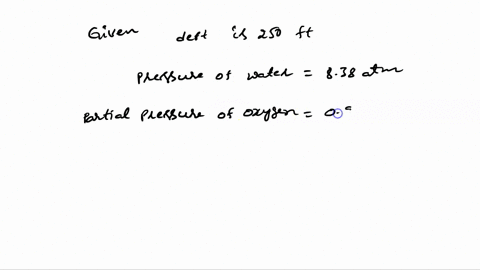 Given dept is 250 ft
Pressure of water = 8.38 atm
Partial pressure of oxygen = 0.